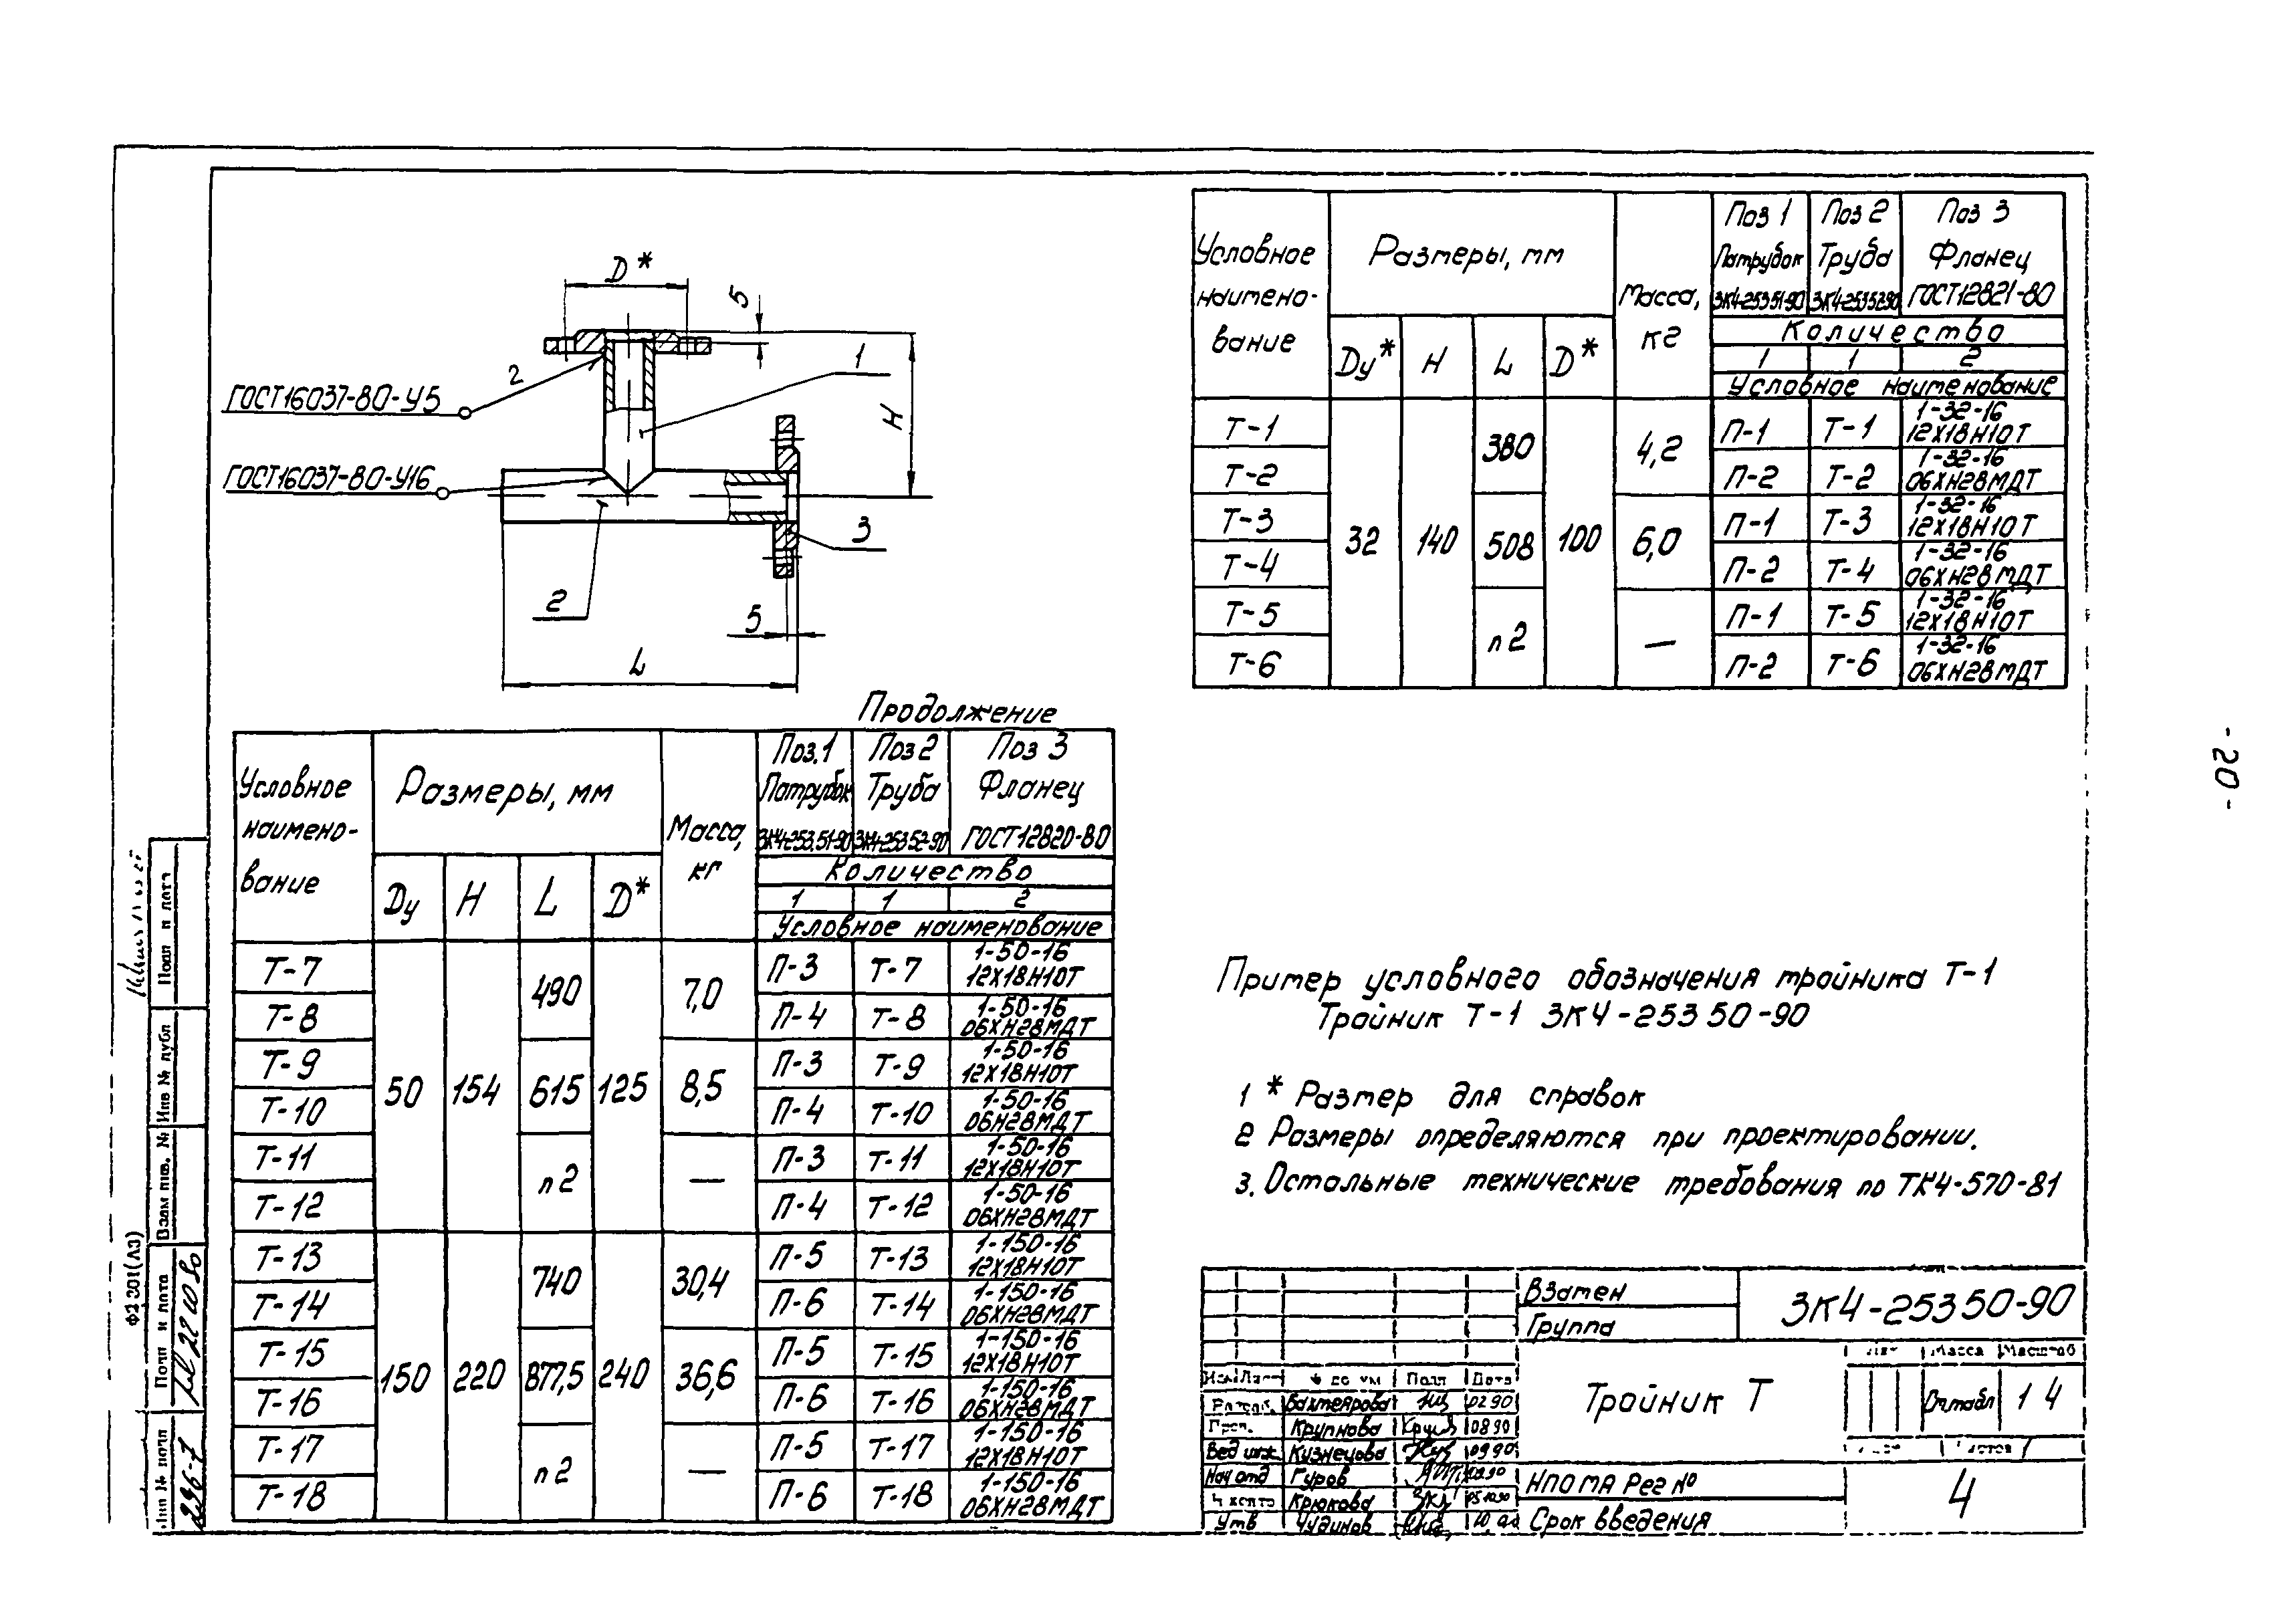 D*
5
1
2
ГОСТ16037-80-У5
H
ГОСТ16037-80-У16
3
2
5
L
Условное наимено-вание
Размеры, мм
Масса, кг
Поз 1 Поз 2 Поз 3
Патрубок Труба Фланец
ЗК4-25351-90 ЗК4-25352-90 ГОСТ12821-80
Количество
Dу* H L D*
1 1 2
Условное наименование
Т-1 32 140 380 100 4,2 П-1 Т-1 1-32-16 12Х18Н10Т
Т-2 П-2 Т-2 1-32-16 06ХН28МДТ
Т-3 508 6,0 П-1 Т-3 1-32-16 12Х18Н10Т
Т-4 П-2 Т-4 1-32-16 06ХН28МДТ
Т-5 п 2 — П-1 Т-5 1-32-16 12Х18Н10Т
Т-6 П-2 Т-6 1-32-16 06ХН28МДТ
Продолжение
Условное наимено-вание
Размеры, мм
Масса, кг
Поз.1 Поз 2 Поз 3
Патрубок Труба Фланец
ЗК4-25351-90 ЗК4-25352-90 ГОСТ12820-80
Количество
Dу H L D*
1 1 2
Условное наименование
Т-7 50 154 490 125 7,0 П-3 Т-7 1-50-16 12Х18Н10Т
Т-8 П-4 Т-8 1-50-16 06ХН28МДТ
Т-9 615 8,5 П-3 Т-9 1-50-16 12Х18Н10Т
Т-10 П-4 Т-10 1-50-16 06Н28МДТ
Т-11 п 2 — П-3 Т-11 1-50-16 12Х18Н10Т
Т-12 П-4 Т-12 1-50-16 06ХН28МДТ
Т-13 150 220 740 240 30,4 П-5 Т-13 1-150-16 12Х18Н10Т
Т-14 П-6 Т-14 1-150-16 06ХН28МДТ
Т-15 877,5 36,6 П-5 Т-15 1-150-16 12Х18Н10Т
Т-16 П-6 Т-16 1-150-16 06ХН28МДТ
Т-17 п 2 — П-5 Т-17 1-150-16 12Х18Н10Т
Т-18 П-6 Т-18 1-150-16 06ХН28МДТ
Пример условного обозначения тройника Т-1
Тройник Т-1 ЗК4-25350-90
1 * Размер для справок
2 Размеры определяются при проектировании.
3. Остальные технические требования по ТК4-570-81
Взамен
Группа
ЗК4-25350-90
Тройник Т
Масса Масштаб
См.табл 1 4
1
Изм Лист Подп Дата
Бахтеярова 02 90
Крупнова 08 90
Вед инж. Кузнецова 09 90
Нач отд Гуров
Крюкова
Утв Чудинов
НПО МА Рег №
Срок введения
4
-20-
Подп и дата
Инв № дубл
Взам инв. №
Подп и дата
Инв № подп
Ф2 301(А3)